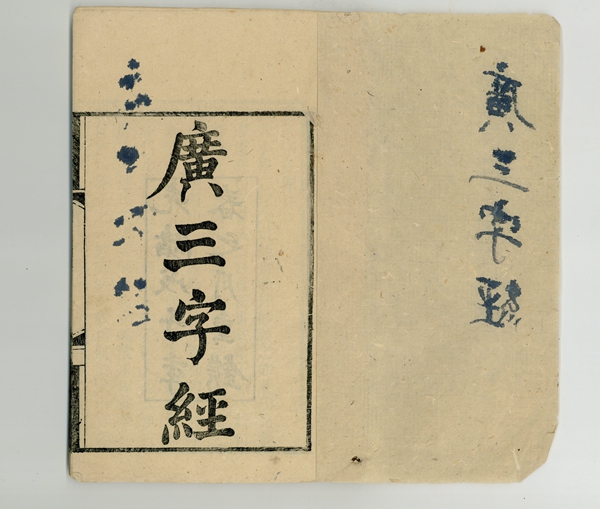 廣三字經
廣三字經